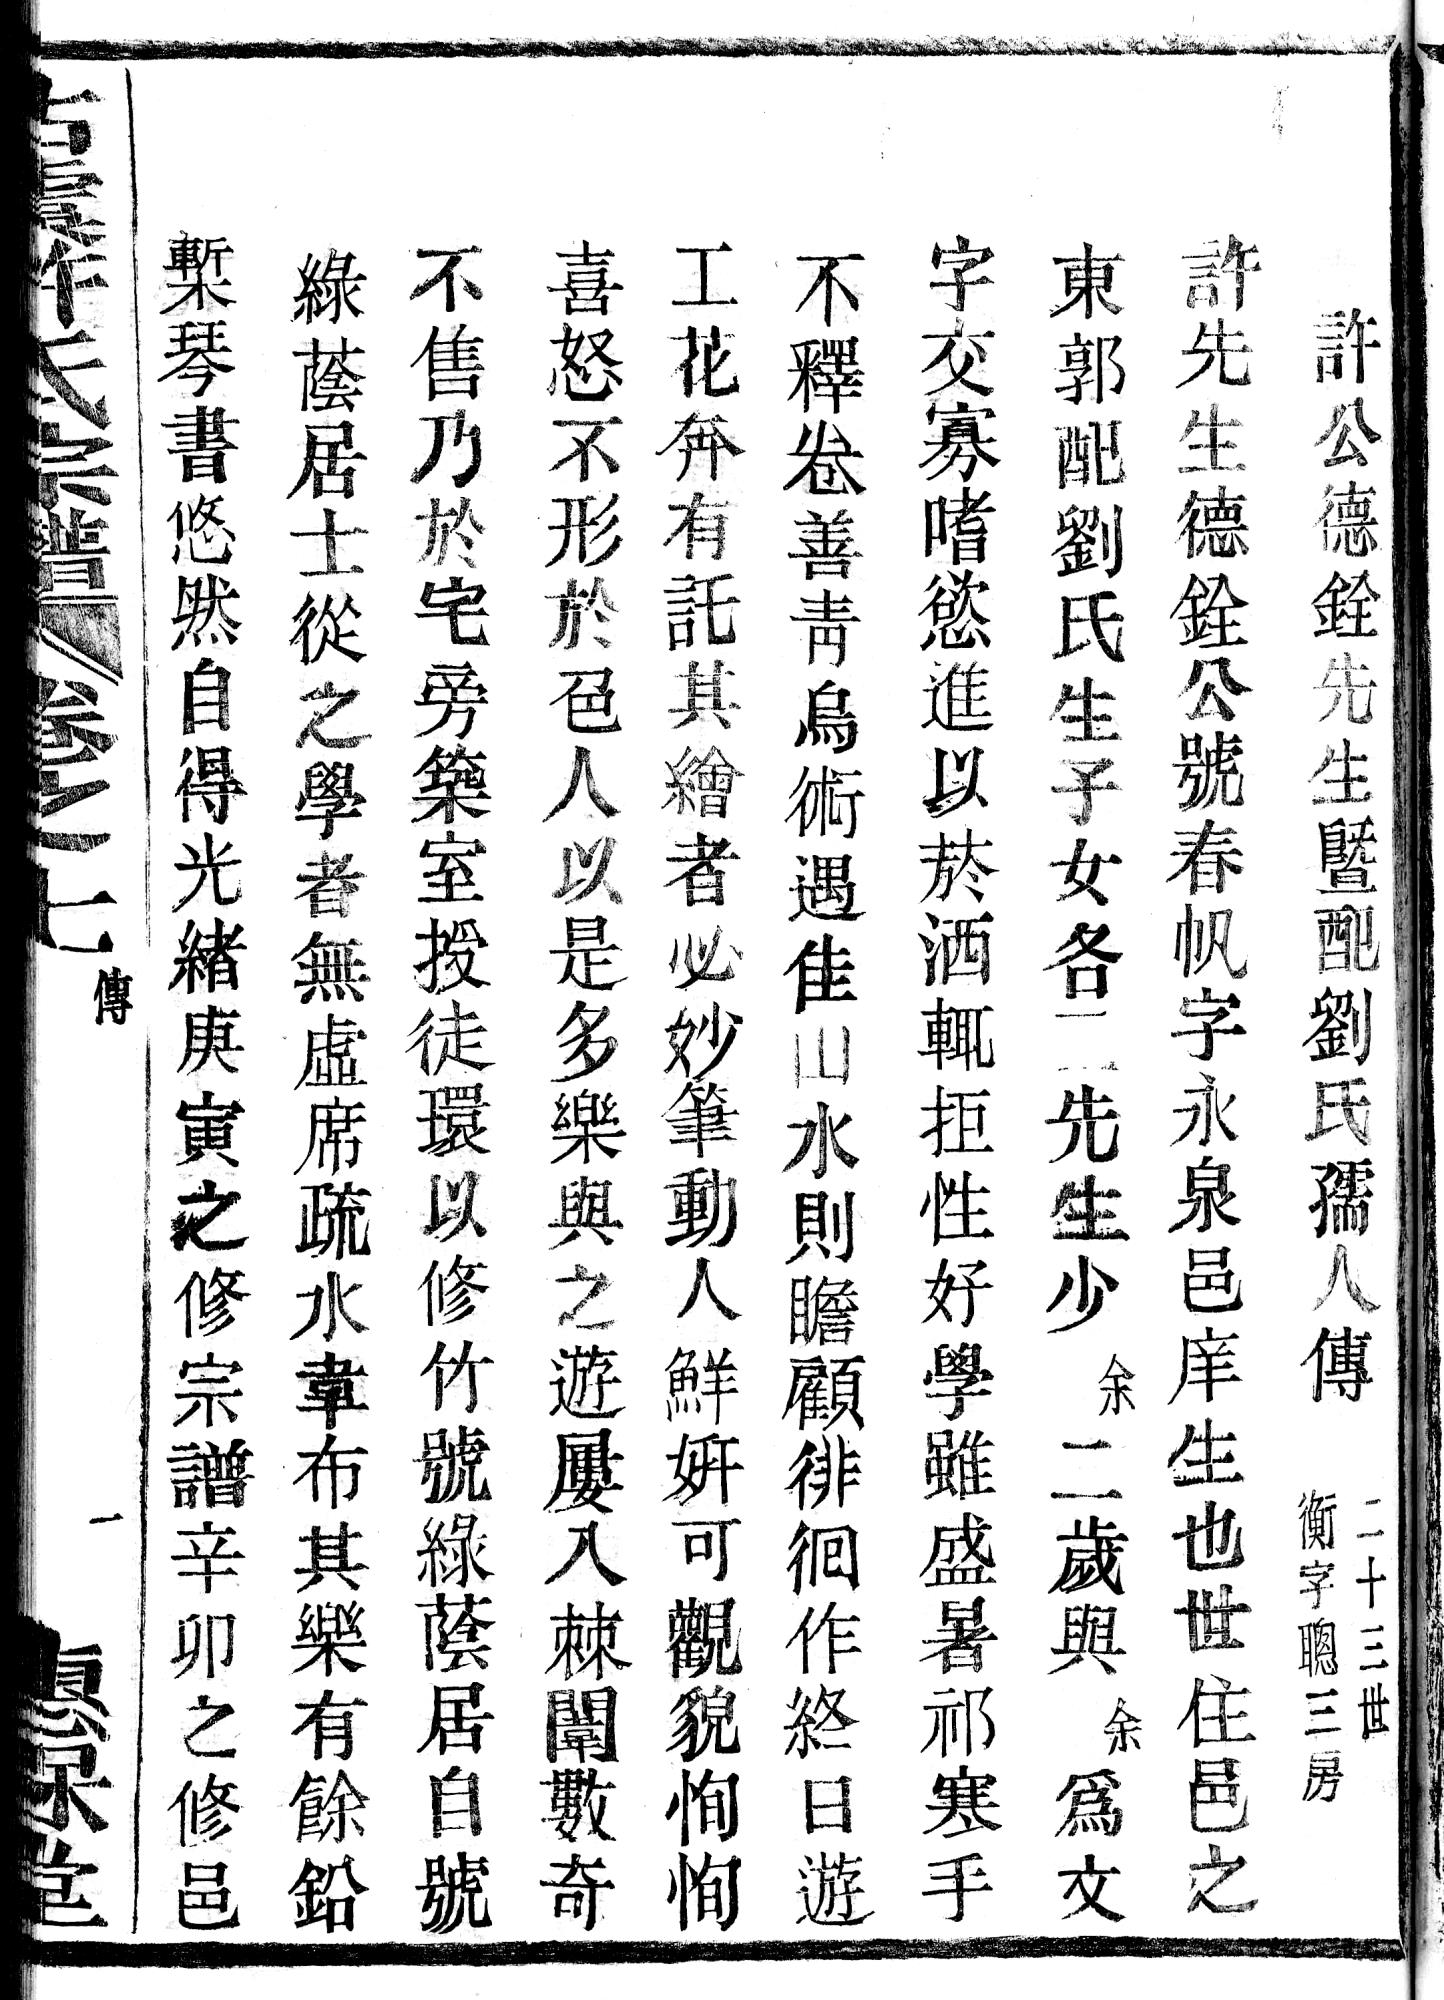 許公德銓先生暨配劉氏孺人傳
二十三世
衡字聰三房
許先生德銓公號春帆字永泉邑庠生也世住邑之
東郭配劉氏生子女各二先生少余二歲與余爲文
字交寡嗜慾進以菸洒輒拒性好學雖盛暑祁寒手
不釋卷善靑烏術遇佳山水則瞻顧徘徊作終日遊
工花卉有託其繪者必妙筆動人鮮姸可觀貌恂恂
喜怒不形於色人以是多樂與之遊屢入棘闈數奇
不售乃於宅旁築室授徒環以修竹號綠蔭居自號
綠蔭居士從之學者無虛席疏水韋布其樂有餘鉛
槧琴書悠然自得光緒庚寅之修宗譜辛卯之修邑
氏宗譜
卷之七
傳
一
堂